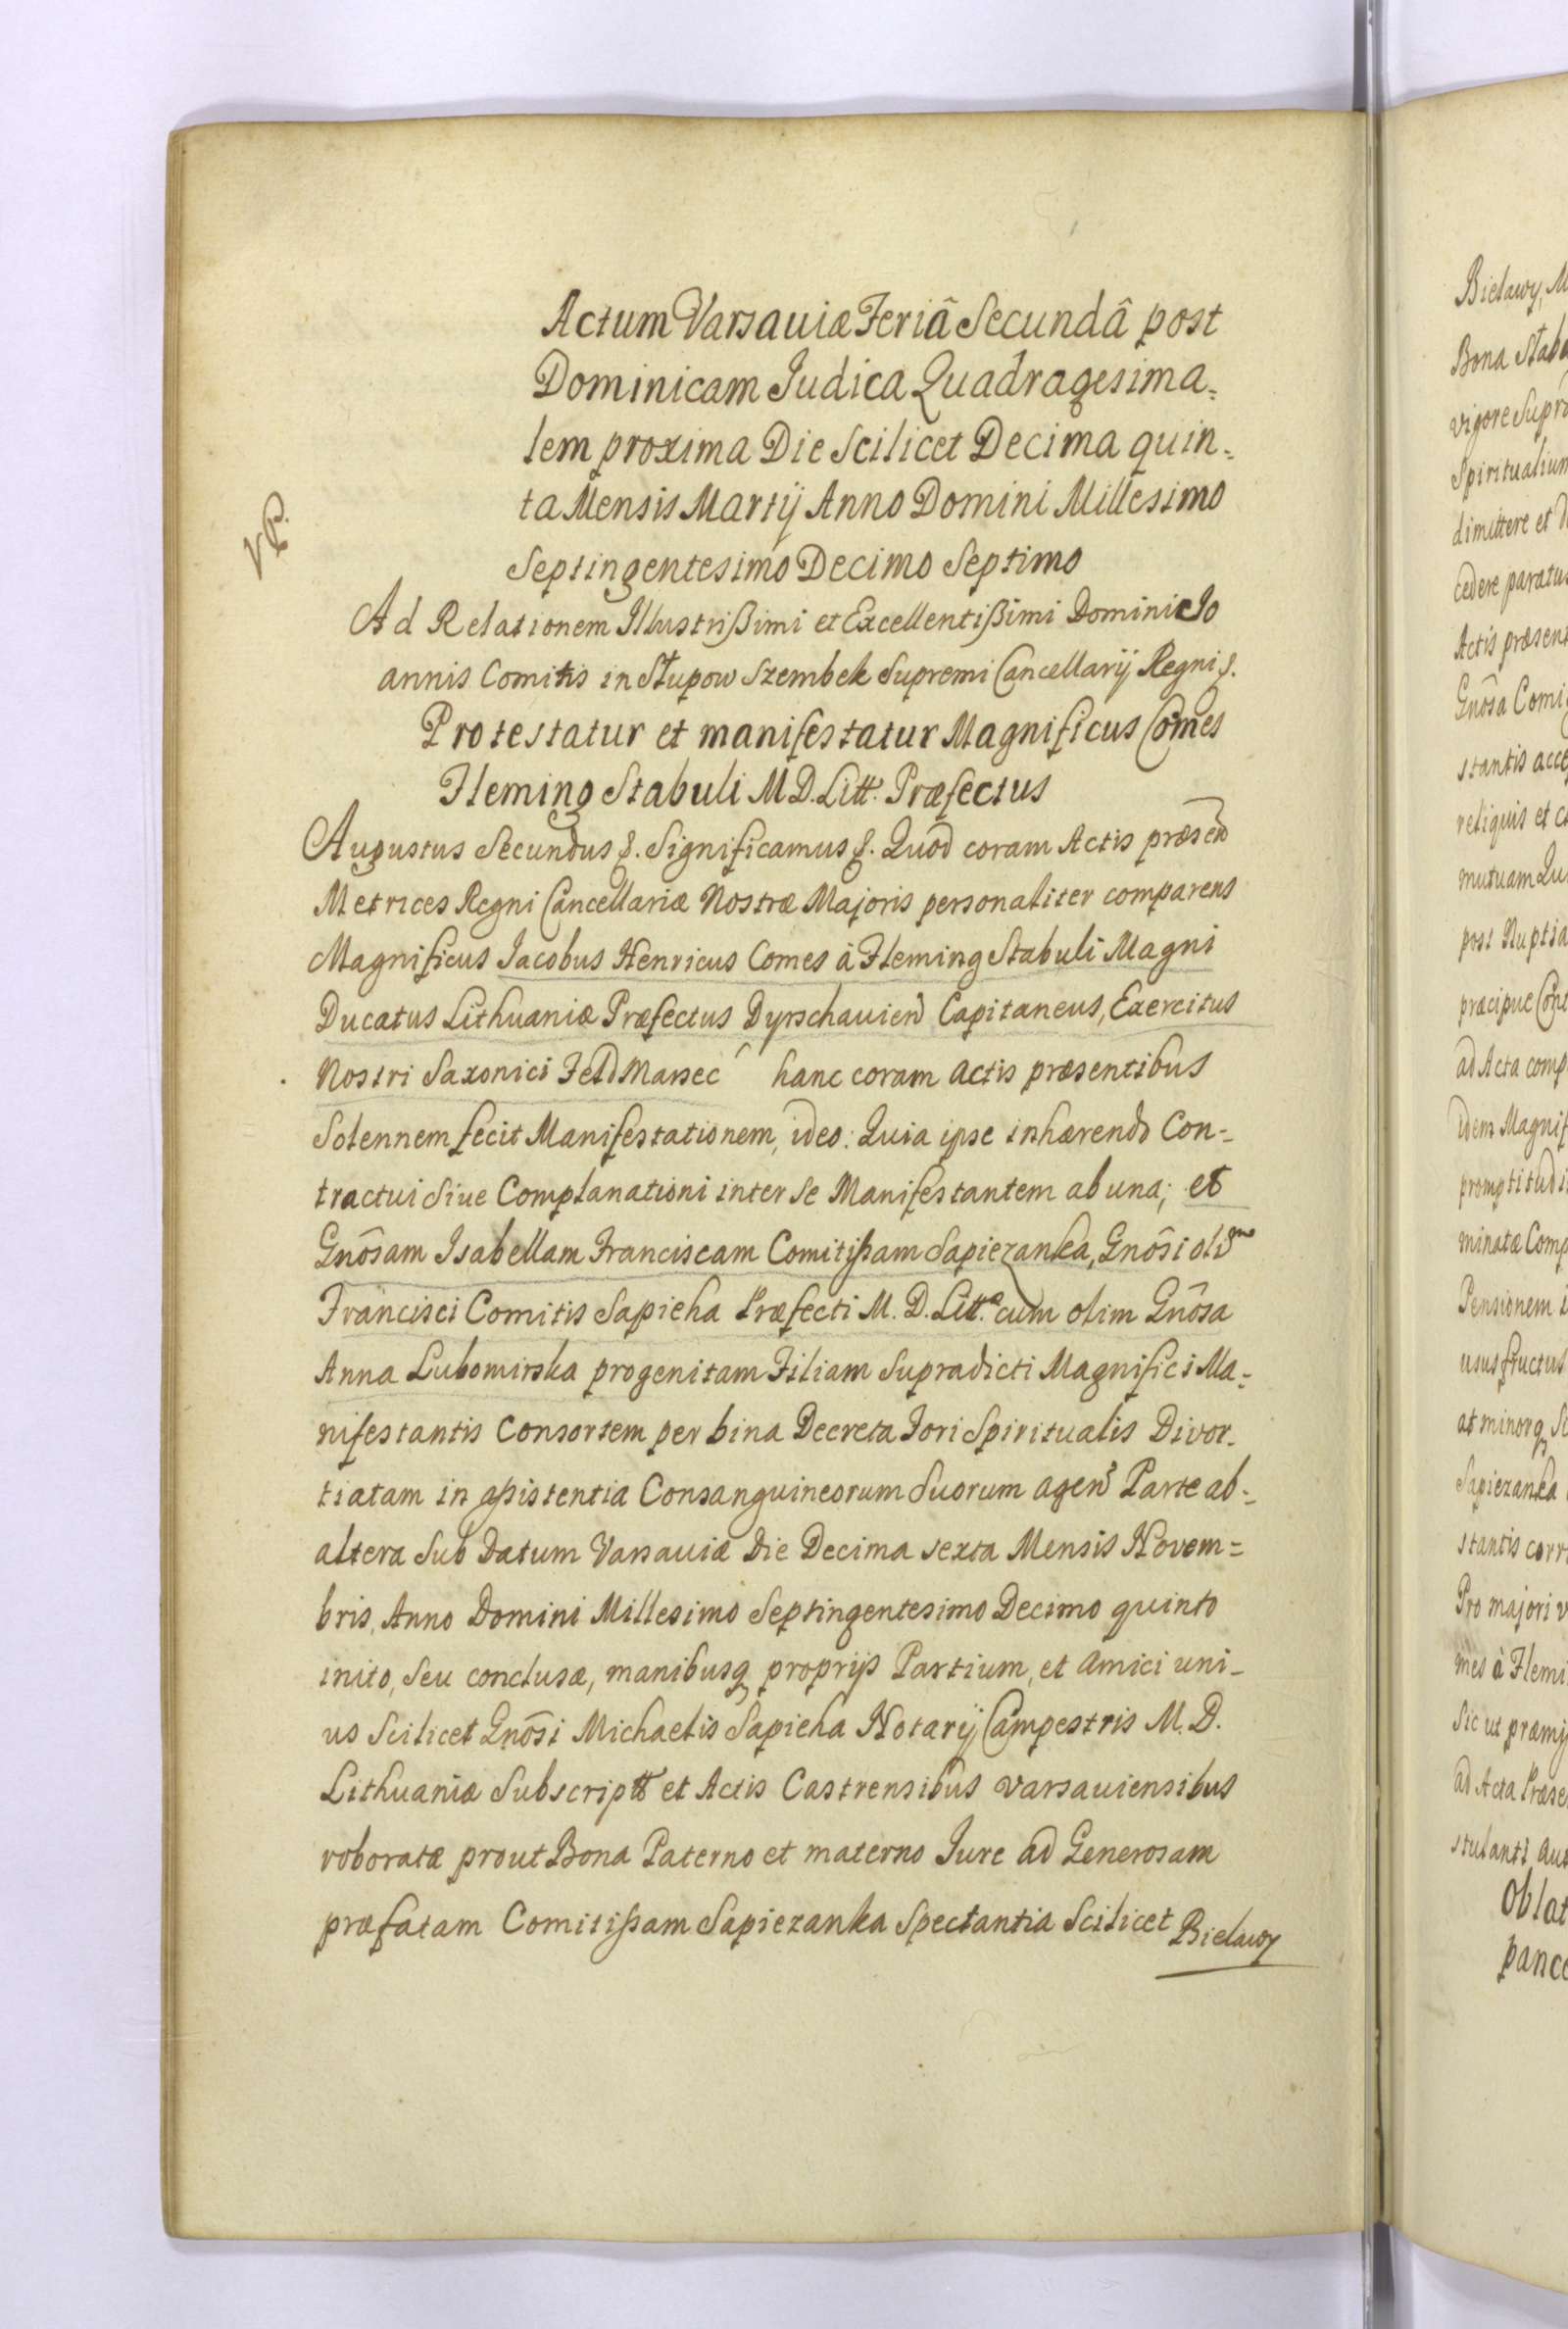 Actum Varsauiæ Feriâ Secundâ post
Dominicam Judica Quadragesima=
lem proxima Die Scilicet Decima quin=
ta Mensis Martij Anno Domini Millesimo
Septingentesimo Decimo Septimo
VP.
Ad Relationem Illustrißimi et Excellentißimi Domini Jo
annis Comitis in Słupow Szembek Supremi Cancellarij Regni &.
Protestatur et manifestatur Magnificus Comes
Fleming Stabuli M D. Litt. Præfectus
Augustus Secundus &. Significamus &. Quod coram Actis præsen
Metrices Regni Cancellariæ Nostræ Majoris personaliter comparens
Magnificus Jacobus Henricus Comes à Fleming Stabuli Magni
Ducatus Lithuaniæ Præfectus Dyrschauien Capitaneus, Exercitus
Nostri Saxonici Feld Marsec hanc coram actis præsentibus
Solennem fecit Manifestationem, ideo: Quia ipse inhærendo Con=
tractui Siue Complanationi inter se Manifestantem ab una; et
Gnôsam Isabellam Franciscam Comitißam Sapiezanka, Gnôsi olim
Francisci Comitis Sapieha Præfecti M. D. Litt. cum olim Gnôsa
Anna Lubomirska progenitam Filiam Supradicti Magnifici Ma=
nifestantis Consortem per bina Decreta Fori Spiritualis Divor=
tiatam in aßistentia Consanguineorum Suorum agen Parte ab=
altera Sub Datum Varsauiæ Die Decima sexta Mensis Novem=
bris, Anno Domini Millesimo Septingentesimo Decimo quinto
inito, seu conclusæ, manibusq proprijs Partium, et amici uni=
us Scilicet Gnôsi Michaelis Sapieha Notarij Campestris M. D.
Lithuaniæ Subscript et Actis Castrensibus varsauiensibus
roboratæ prout Bona Paterno et materno Jure ad Generosam
præfatam Comitißam Sapiezanka Spectantia Scilicet Bielawy
Bielawy, M
Bona Stab
vigore Supra
Spiritualium
dimittere et
cedere paratus
Actis præsent
Gnôsa Comi
stantis acce
reliquis et c
mutuam Qu
post Nuptia
præcipue Cont
ad Acta comp
idem Magnif
promptitudi
minatæ Comp
Pensionem
usus fructus
at minorq
Sapiezanka
stantis corr
Pro majori v
mes à Flemi
Sic ut præmi
ad Acta Præse
stulanti aut
Oblat
panc